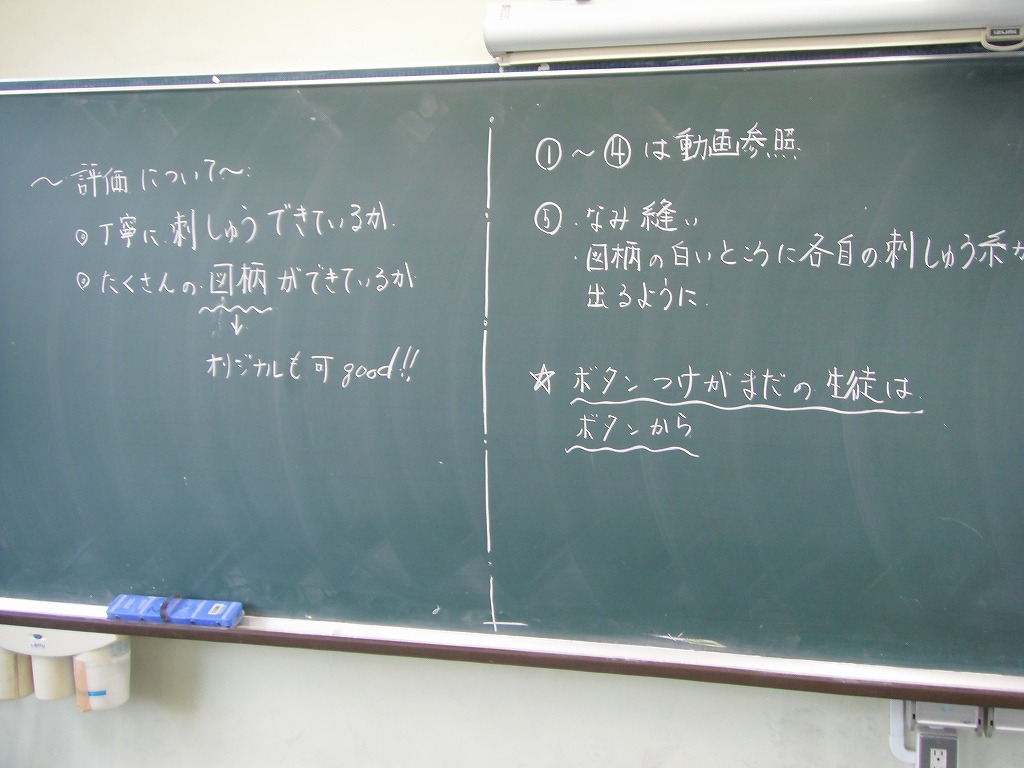 ～評価について～
◎丁寧に刺しゅうできているか
◎たくさんの図柄ができているか
↓
オリジナルも可good!!
①～④は動画参照
⑤・なみ縫い
・図柄の白いところに各自の刺しゅう糸が
出るように
☆ボタンつけがまだの生徒は
ボタンから